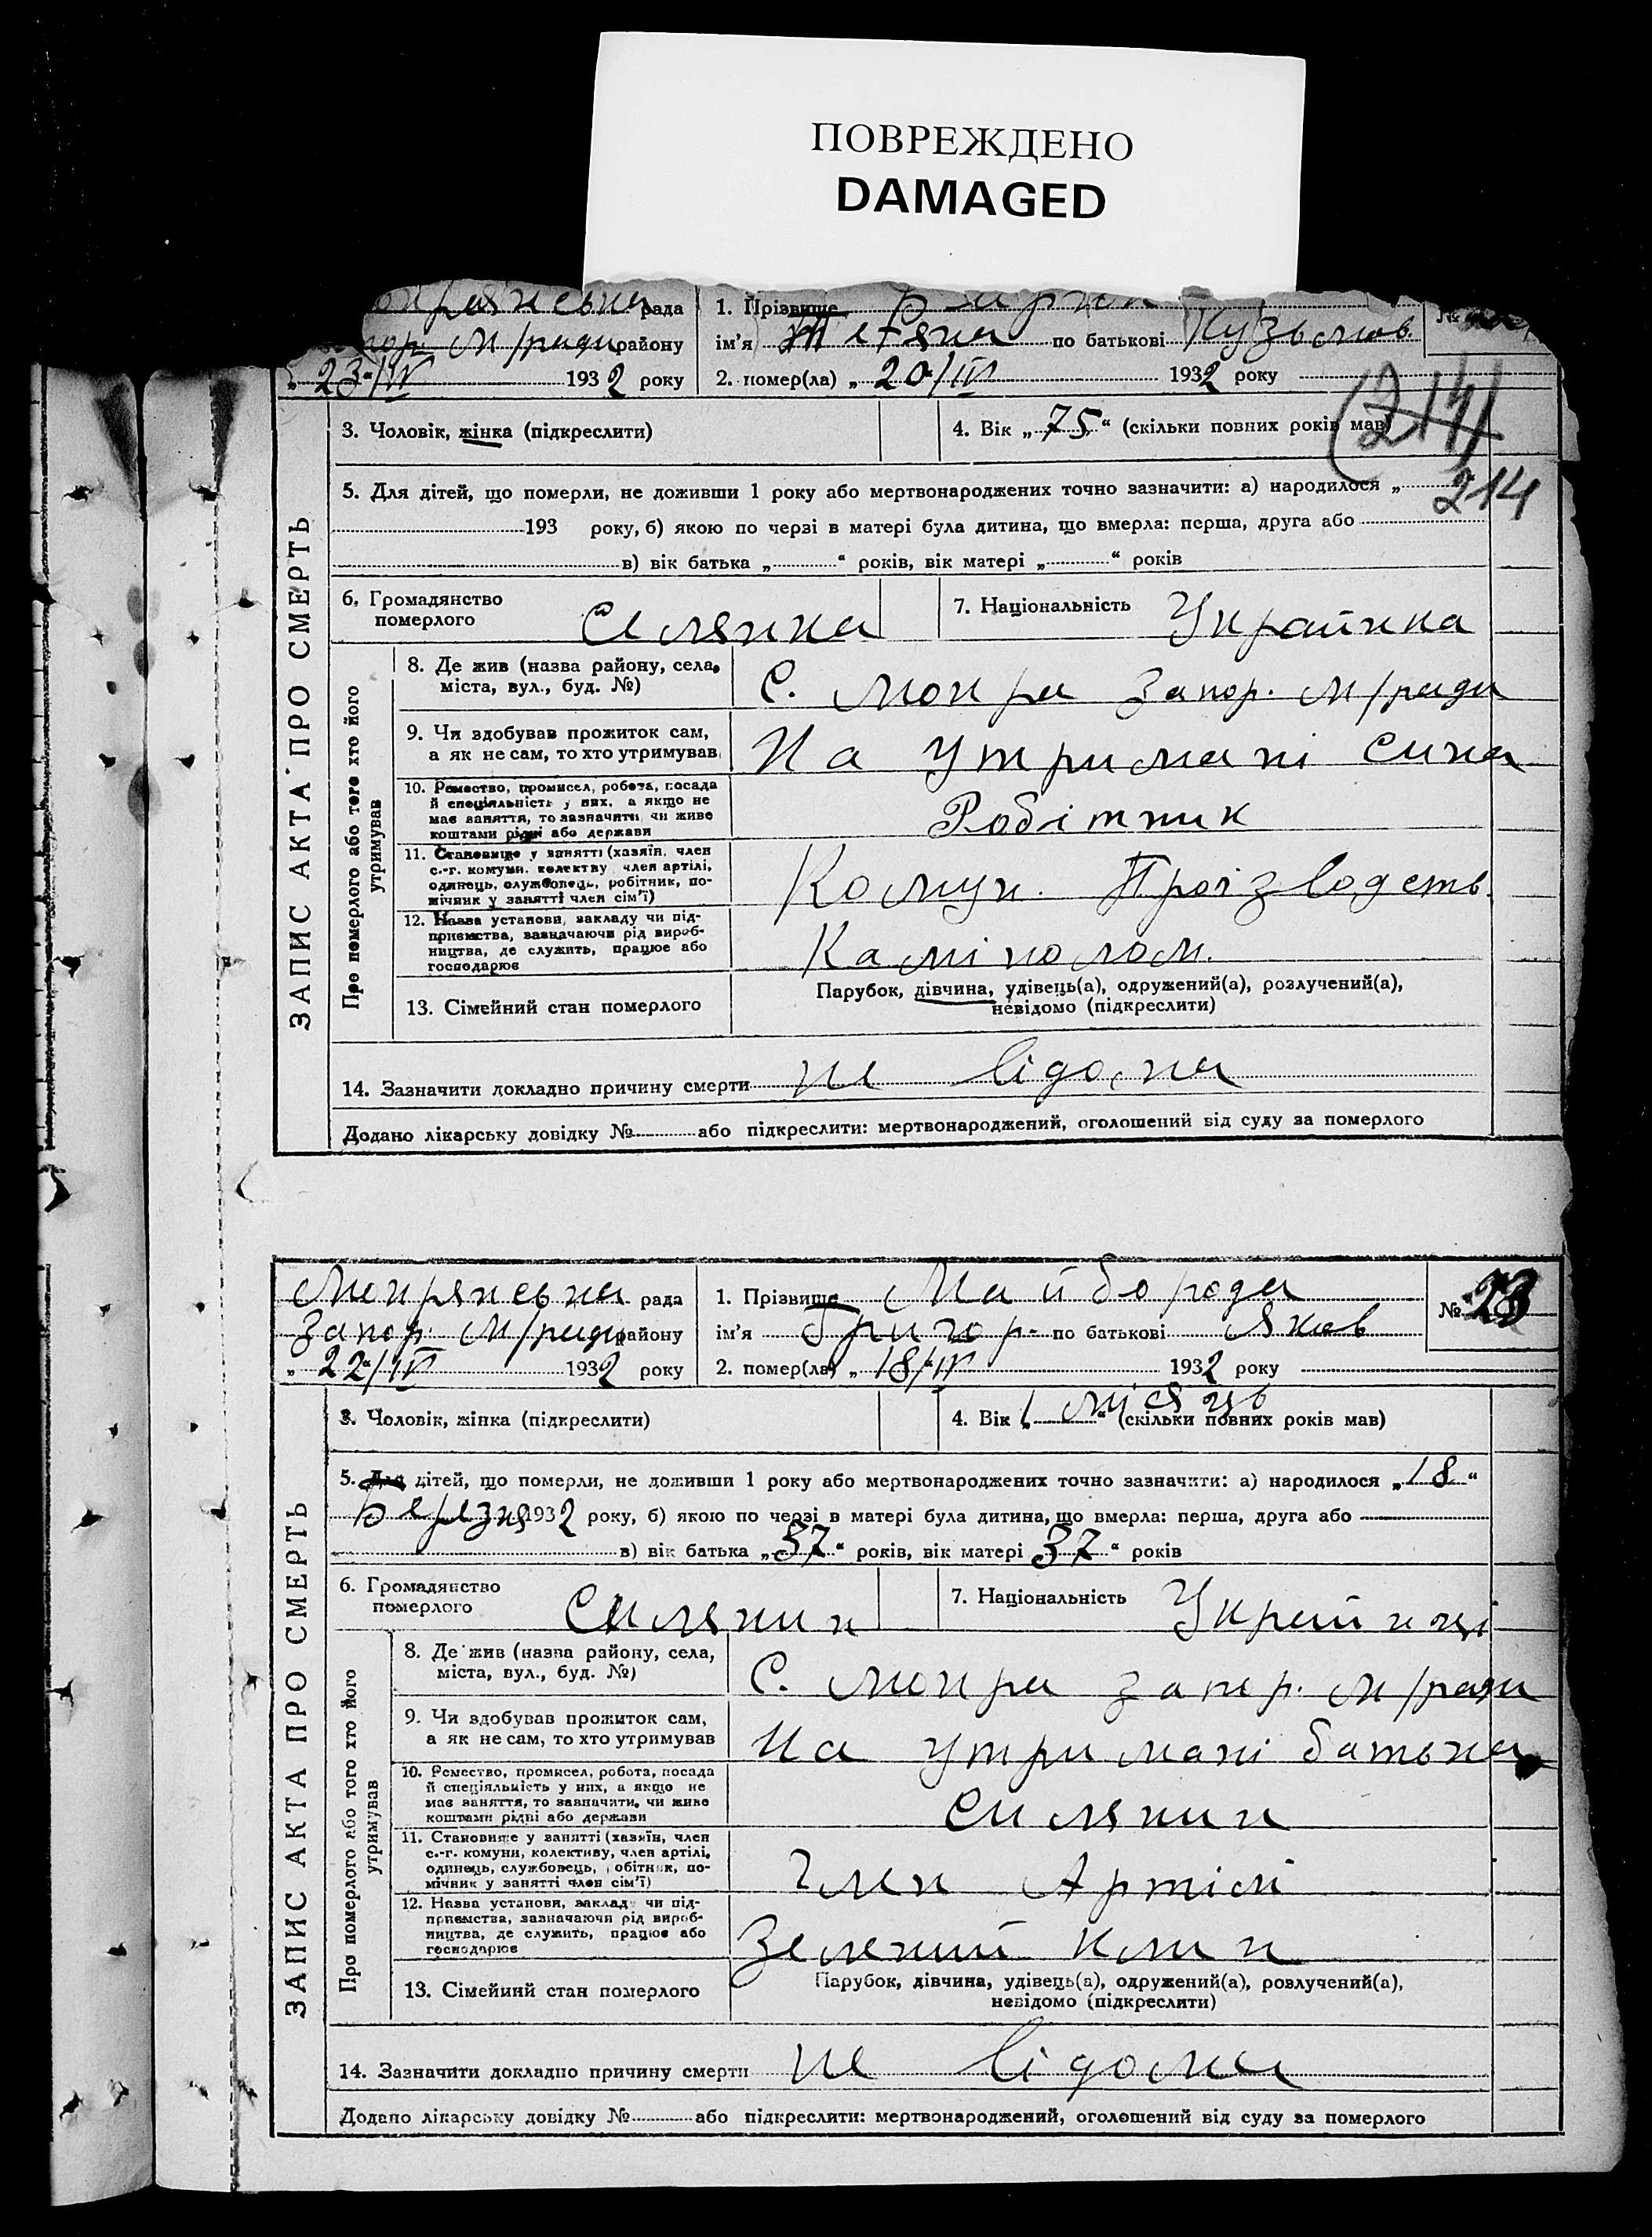 ПОВРЕЖДЕНО
DAMAGED
рада
1. Прізвище
м/ради району
ім'я Тетяна по батькові Кузьмов.
„ 23 “/IV 1932 року
2. помер(ла) „ 20 “/IV 1932 року
(214)
214
3. Чоловік, жінка (підкреслити)
4. Вік „ 75 “ (скільки повних років мав)
5. Для дітей, що померли, не доживши 1 року або мертвонароджених точно зазначити: а) народилося „
193 року, б) якою по черзі в матері була дитина, що вмерла: перша, друга або
в) вік батька „ “ років, вік матері „ “ років
6. Громадянство померлого Селянка
7. Національність Українка
ЗАПИС АКТА ПРО СМЕРТЬ
Про померлого або того хто його утримував
8. Де жив (назва району, села,
міста, вул., буд. №)
С. Мокра Запор. м/ради
9. Чи здобував прожиток сам,
а як не сам, то хто утримував
На утримані сина
10. Ремество, промисел, робота, посада
й спеціяльність у них, а якщо не
має заняття, то зазначити, чи живе
коштами рідні або держави
Робітник
11. Становище у занятті (хазяїн, член
с.-г. комуни, колективу, член артілі,
одинець, службовець, робітник, по-
мічник у занятті член сім'ї)
Комун. Проізводств.
12. Назва установи, закладу чи під-
приємства, зазначаючи рід вироб-
ництва, де служить, працює або
господарює
Каміполом.
13. Сімейний стан померлого
Парубок, дівчина, удівець(а), одружений(а), розлучений(а),
невідомо (підкреслити)
14. Зазначити докладно причину смерти не відома
Додано лікарську довідку № або підкреслити: мертвонароджений, оголошений від суду за померлого
Мокрянська рада
1. Прізвище Майборода
№ 23
Запор. м/ради району
ім'я Григор. по батькові Яков
„ 22 “/IV 1932 року
2. помер(ла) „ 18 “/IV 1932 року
3. Чоловік, жінка (підкреслити)
4. Вік „ 1 місяць “ (скільки повних років мав)
5. Для дітей, що померли, не доживши 1 року або мертвонароджених точно зазначити: а) народилося „ 18 “
Березня 1932 року, б) якою по черзі в матері була дитина, що вмерла: перша, друга або
в) вік батька „ 37 “ років, вік матері „ 37 “ років
6. Громадянство померлого Селянин
7. Національність Українці
ЗАПИС АКТА ПРО СМЕРТЬ
Про померлого або того хто його утримував
8. Де жив (назва району, села,
міста, вул., буд. №)
С. Мокра Запор. м/ради
9. Чи здобував прожиток сам,
а як не сам, то хто утримував
На утримані батька
10. Ремество, промисел, робота, посада
й спеціяльність у них, а якщо не
має заняття, то зазначити, чи живе
коштами рідні або держави
Селянин
11. Становище у занятті (хазяїн, член
с.-г. комуни, колективу, член артілі,
одинець, службовець, робітник, по-
мічник у занятті член сім'ї)
Член Артілі
12. Назва установи, закладу чи під-
приємства, зазначаючи рід вироб-
ництва, де служить, працює або
господарює
Зелений клин
13. Сімейний стан померлого
Парубок, дівчина, удівець(а), одружений(а), розлучений(а),
невідомо (підкреслити)
14. Зазначити докладно причину смерти не відома
Додано лікарську довідку № або підкреслити: мертвонароджений, оголошений від суду за померлого